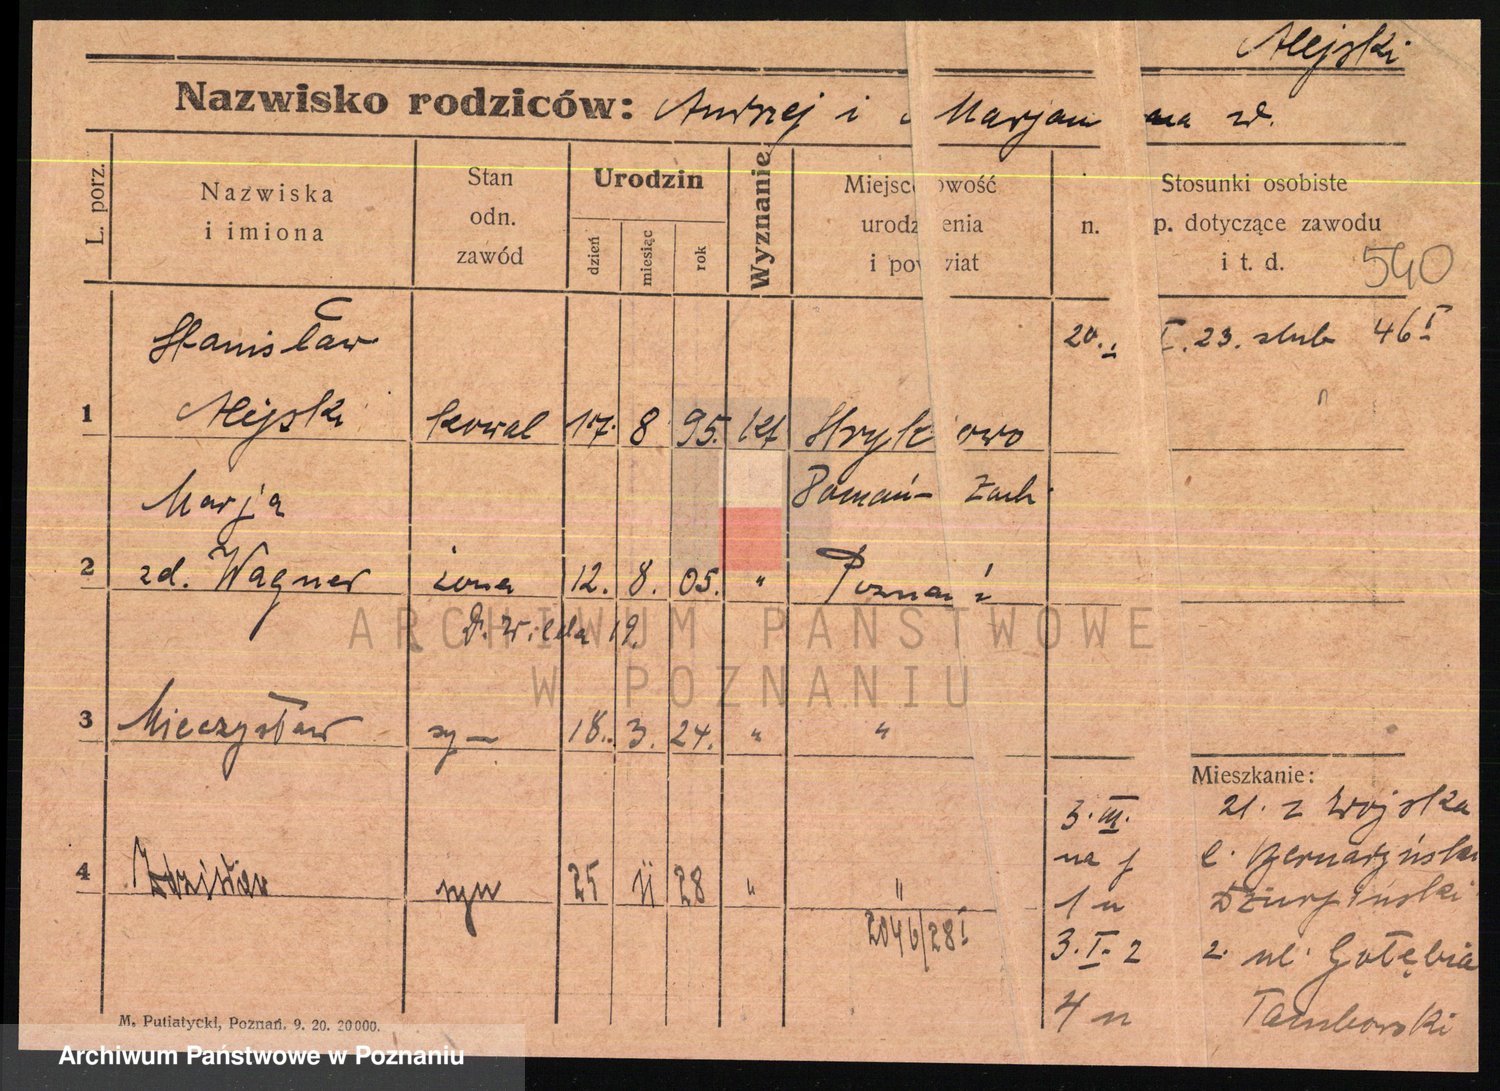 Alejski
Nazwisko rodziców: Andrzej i Marjanna zd.
L. porz.
Nazwiska
i imiona
Stan
odn.
zawód
Urodzin
dzień
miesiąc
rok
Wyznanie
Miejsc owość
urodz enia
i pow wiat
n.
Stosunki osobiste
p. dotyczące zawodu
i t. d.
540
Stanisław
20. I. 23. ślub 46 I
1 Alejski kowal 17. 8 95. kt Stryk owo
Marja
Poznań- Zach
2 zd. Wagner żona 12. 8. 05. " Poznań
D. Wilda 19.
3 Mieczysław sy— 18. 3. 24. " "
Mieszkanie:
3. III. 21. z wojska
4 Zdzisław syn 25 II 28 " "
na f l. Bernardyński
1 u
2046/28 I
3. I. 2 2. ul. Gołębia
4 u Tamborski
M. Putiatycki, Poznań. 9. 20. 20000.
ARCHIWUM PAŃSTWOWE
W POZNANIU
Archiwum Państwowe w Poznaniu